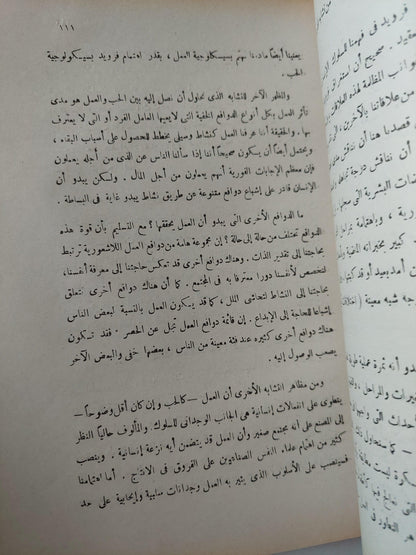 ١١١
يعنينا أيضاً مادمنا نهتم بسيكلوجية العمل ، بقدر اهتمام فرويد بسيكولوجية
الحب .
والمظهر الآخر للتشابه الذى نحاول أن نصل إليه بين الحب والعمل هو مدى
تأثر العمل بكل أنواع الدوافع الخفية التى لا يعيها العامل الفرد أو التى لا يعترف
بها . والحقيقة أننا عرفنا العمل كنشاط وسيلى يخطط للحصول على أسباب البقاء ،
ويحتمل أيضاً أن يكون صحيحاً أننا إذا سألنا الناس عن الذى من أجله يعملون
فإن معظم الإجابات الفورية أنهم يعملون من أجل المال . ولكن يبدو أن
الإنسان قادر على إشباع دوافع متنوعة عن طريق نشاط يبدو غاية فى البساطة .
ما الدوافع الأخرى التى يبدو أن العمل يحققها ؟ مع التسليم بأن قوة هذه
الدوافع تختلف من حالة إلى حالة ؟ إن مجموعة هامة من دوافع العمل اللاشعورية ترتبط
بحاجتنا إلى تقدير الذات . وهناك دوافع أخرى قد تعكس حاجتنا إلى معرفة أنفسنا ،
لتخصص لأنفسنا دورا معترفا به فى المجتمع . كما أن هناك دوافع أخرى تتعلق
بحاجتنا إلى النشاط لنتحاشى الملل ، كما قد يكون العمل بالنسبة لبعض الناس
إشباعا للحاجة إلى الإبداع . إن قائمة دوافع العمل تجل عن الحصر . فقد تكون
هناك دوافع أخرى كثيرة عند فئة معينة من الناس ، بعضها خفى والبعض الآخر
يصعب الوصول إليه .
ومن مظاهر التشابه الأخرى أن العمل — كالحب وإن كان أقل وضوحا —
ينطوى على انفعالات إنسانية هى الجانب الوجدانى للسلوك . والمألوف حالياً النظر
إلى المصنع على أنه مجتمع صغير وأن العمل قد يتضمن أية نزعة إنسانية . وينصب
كثير من اهتمام علماء النفس الصناعيين على الفروق فى الانتاج . أما اهتمامنا
فسينصب على الأسلوب الذى يثير به العمل وجدانات سلبية وإيجابية على حد